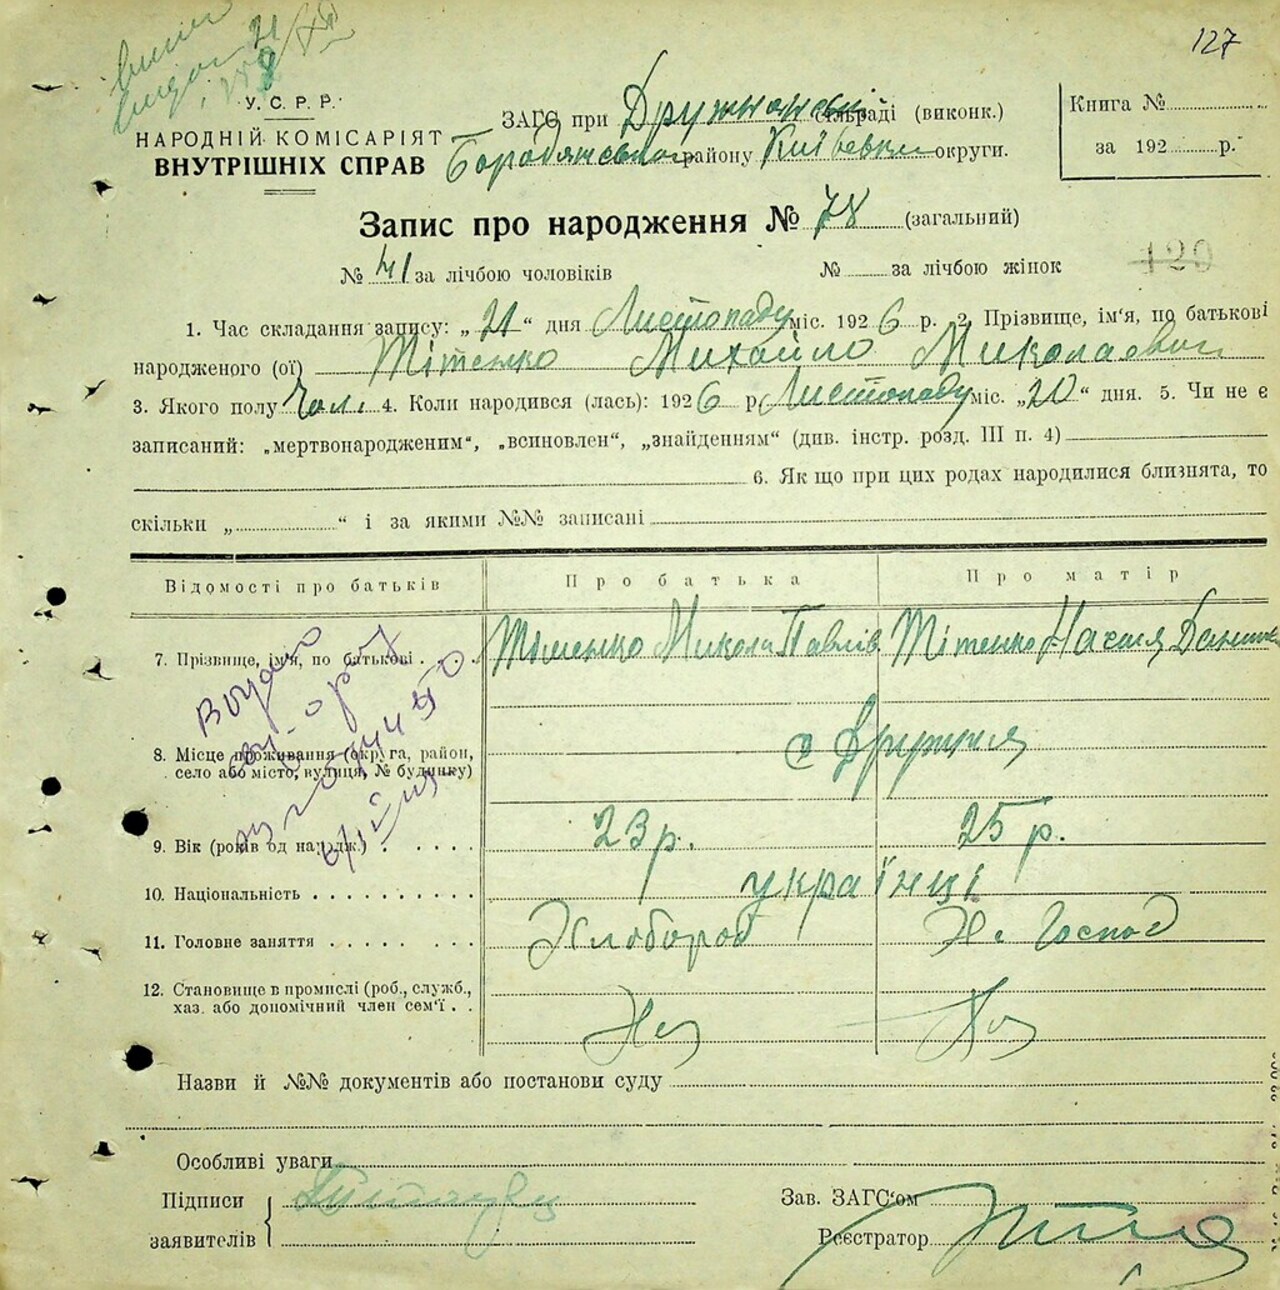 127
У. С. Р. Р.
НАРОДНІЙ КОМІСАРІЯТ
ВНУТРІШНІХ СПРАВ
ЗАГС при Дружнянські сільраді (виконк.)
Бородянського району Київської округи.
Книга №
за 192 р.
Запис про народження № 78 (загальний)
№ 41 за лічбою чоловіків № за лічбою жінок
120
1. Час складання запису: „21“ дня Листопаду міс. 1926 р. 2. Прізвище, ім'я, по батькові
народженого (ої) Тітенко Михайло Миколаєвич
3. Якого полу Чол. 4. Коли народився (лась): 1926 р. Листопаду міс. „20“ дня. 5. Чи не є
записаний: „мертвонародженим“, „всиновлен“, „знайденням“ (див. інстр. розд. III п. 4)
6. Як що при цих родах народилися близнята, то
скільки „ “ і за якими №№ записані
Відомості про батьків Про батька Про матір
7. Прізвище, ім'я, по батькові Тітенко Микола Павлів Тітенко Настя
8. Місце проживання (округа, район,
село або місто, вулиця, № будинку) с Дружня
9. Вік (років од народж.) 23 р. 25 р.
10. Національність українці
11. Головне заняття Хлібороб Х. Господ
12. Становище в промислі (роб., служб.,
хаз. або допомічний член сем'ї
Назви й №№ документів або постанови суду
Особливі уваги
Підписи
заявителів
Зав. ЗАГС'ом
Реєстратор